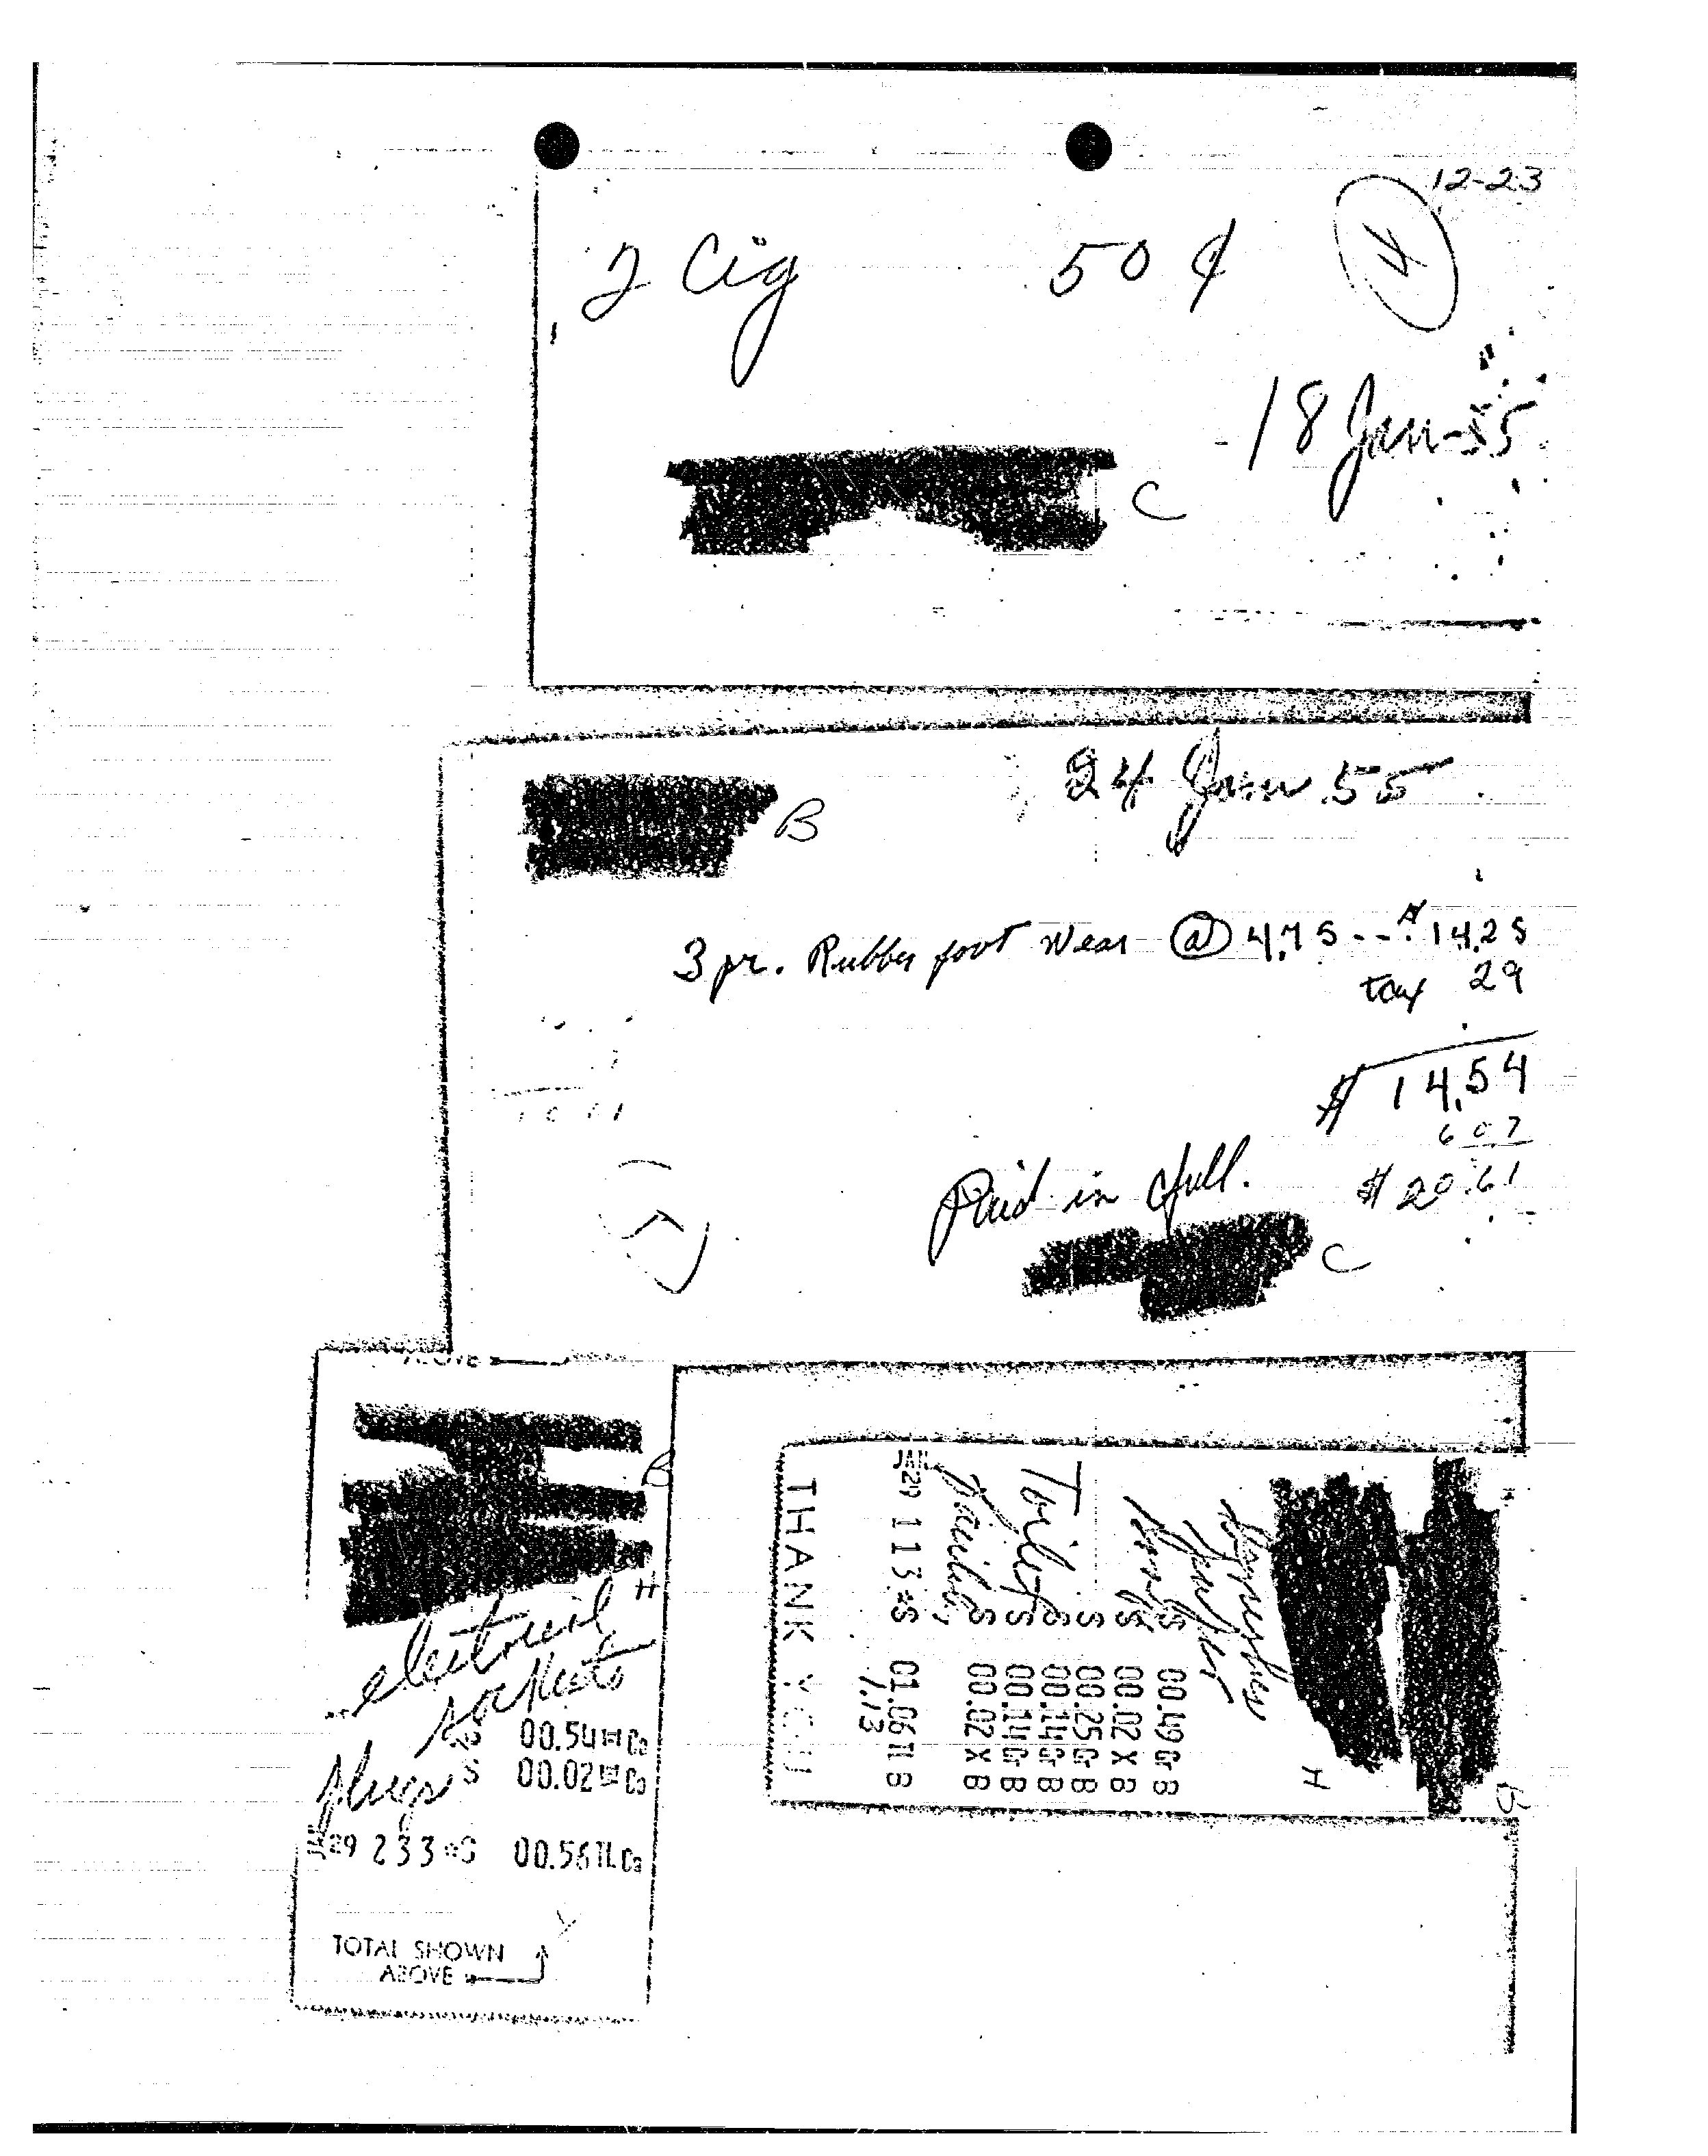 12-23
2 Cig 50 ¢
4
18 Jan-55
C
24 Jan 55
B
3 pr. Rubber foot Wear @ 4.75 --- $ 14.25
tax 29
$ 14.54
6 07
$ 20.61
Paid in full.
C
ABOVE
B
H
electrical
sockets
S 00.54
plugs S 00.02
JAN 29 233 S 00.56 TL
TOTAL SHOWN
ABOVE
B
H
S 00.49 Gr B
S 00.02 X B
S 00.25 Gr B
S 00.14 Gr B
Toilet S 00.14 Gr B
S 00.02 X B
JAN 29 113 S 01.06 TL B
7.13
THANK YOU